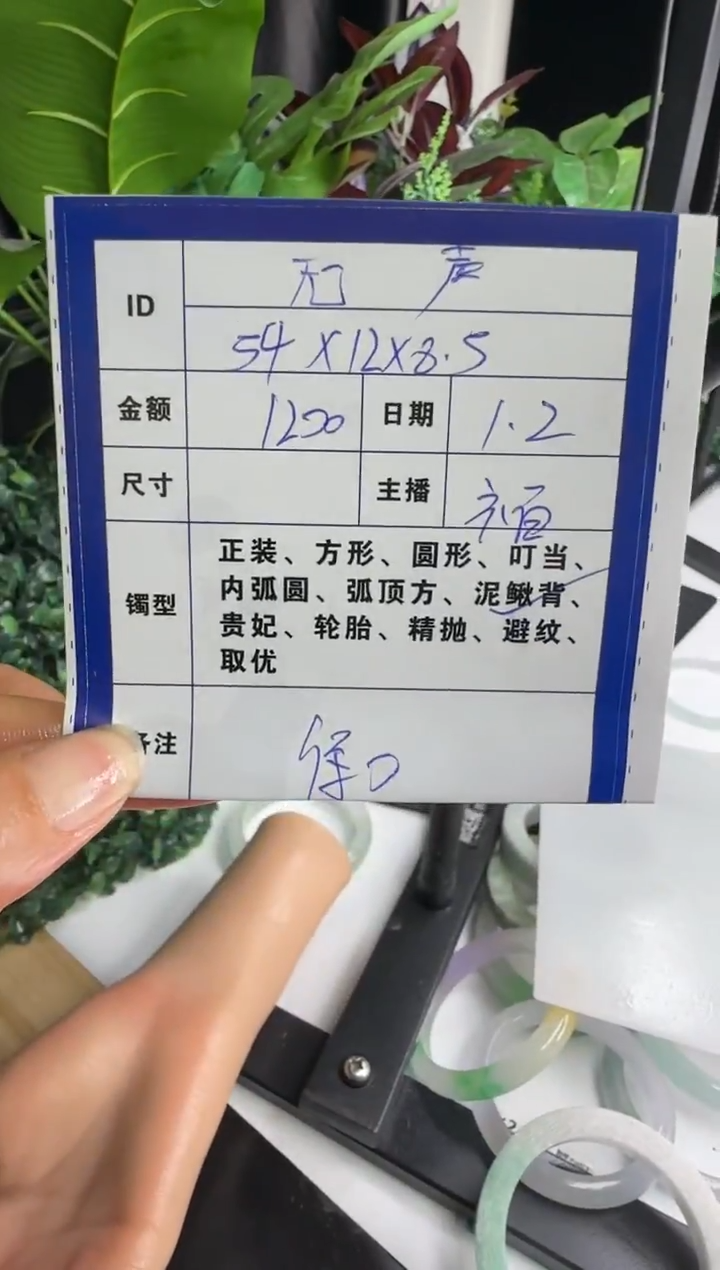 ID 无声
54×12×8.5
金额 1200 日期 1.2
尺寸 主播
镯型 正装、方形、圆形、叮当、
内弧圆、弧顶方、泥鳅背、
贵妃、轮胎、精抛、避纹、
取优
备注